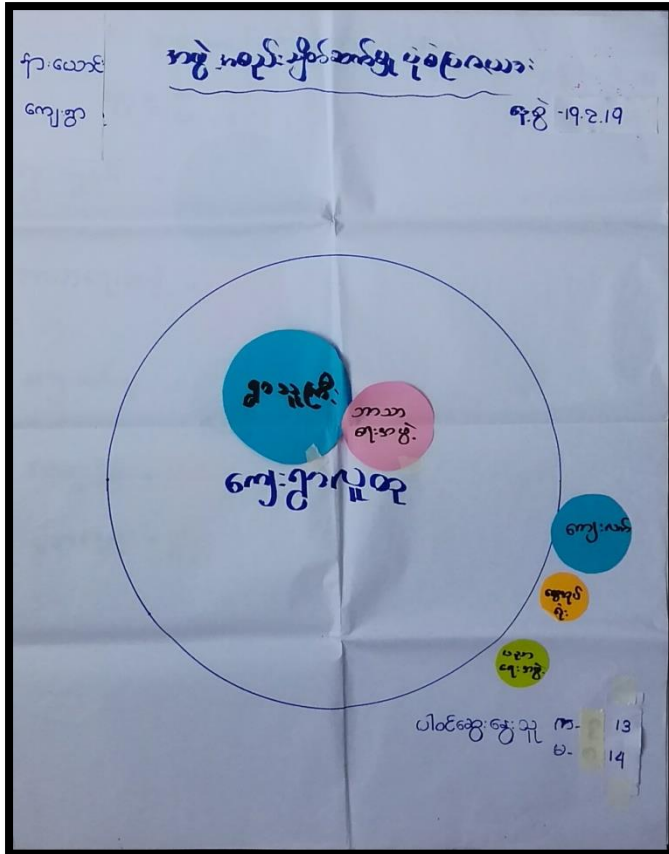 နားယောင်း
ကျေးရွာ
အဖွဲ့အစည်းချိတ်ဆက်မှု ပုံစံပြဇယား
ရက်စွဲ -19.2.19
ရွာသူကြီး
ဘာသာ
ရေးအဖွဲ့
ကျေးရွာလူထု
ကျေးလက်
ရုံး
ပညာ
ရေးအဖွဲ့
ပါဝင်ဆွေးနွေးသူ က- 13
မ- 14